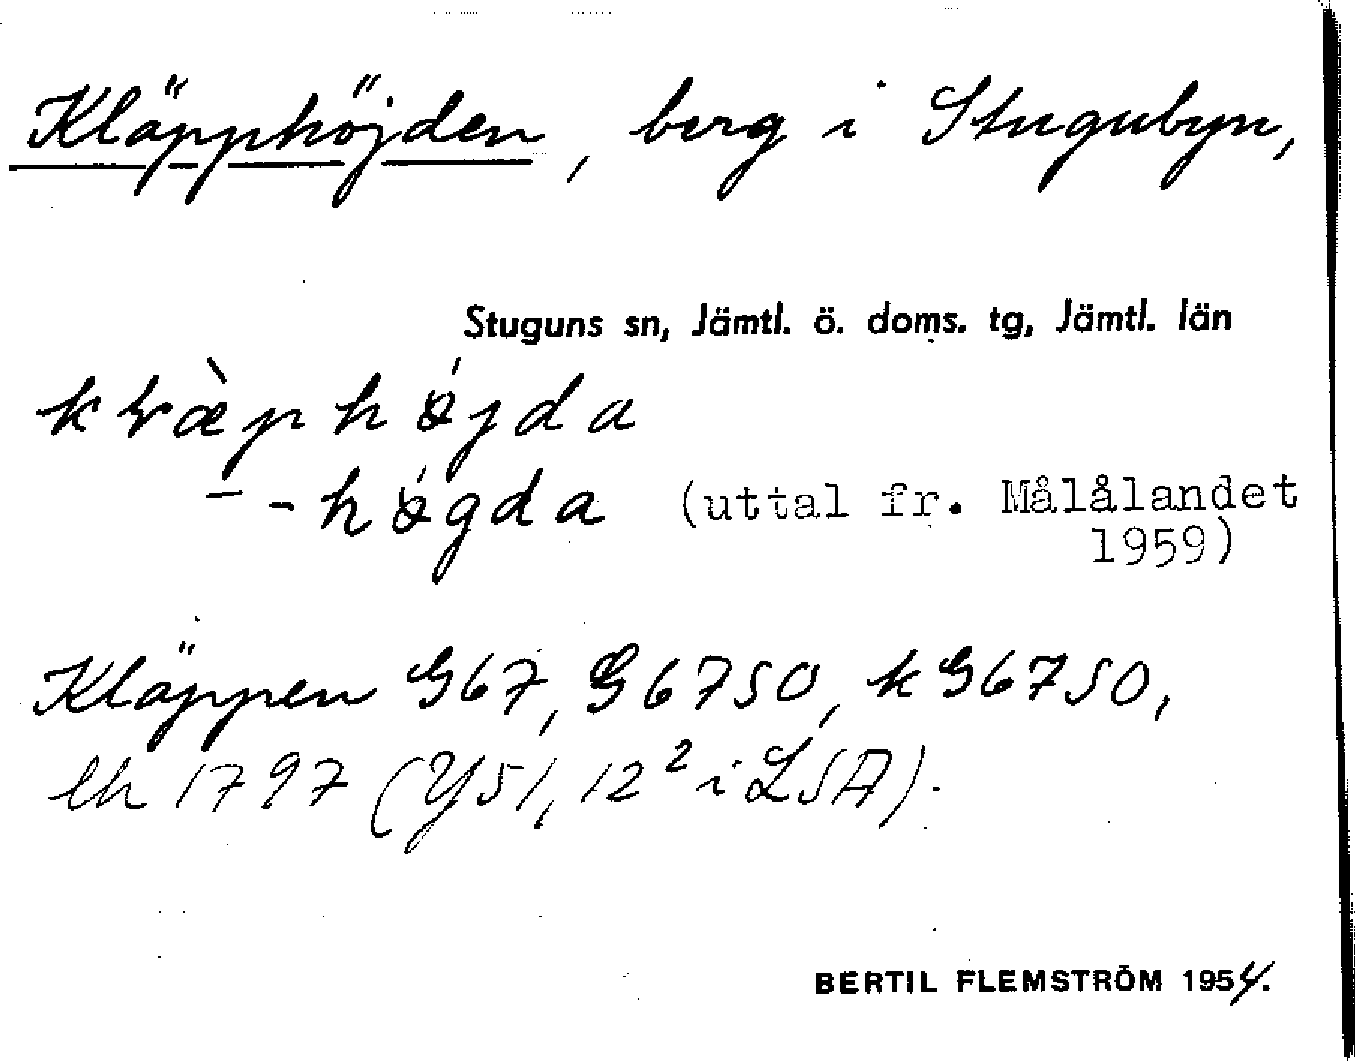 Kläpphöjden, berg i Stugubyn,
Stuguns sn, Jämtl. ö. doms. tg, Jämtl. län
højda
- -høgda (uttal fr. Målålandet
1959)
Kläppen G67, G6750, kG6750,
lh 1797 (Y51, 12² i LSA).
BERTIL FLEMSTRÖM 1954.